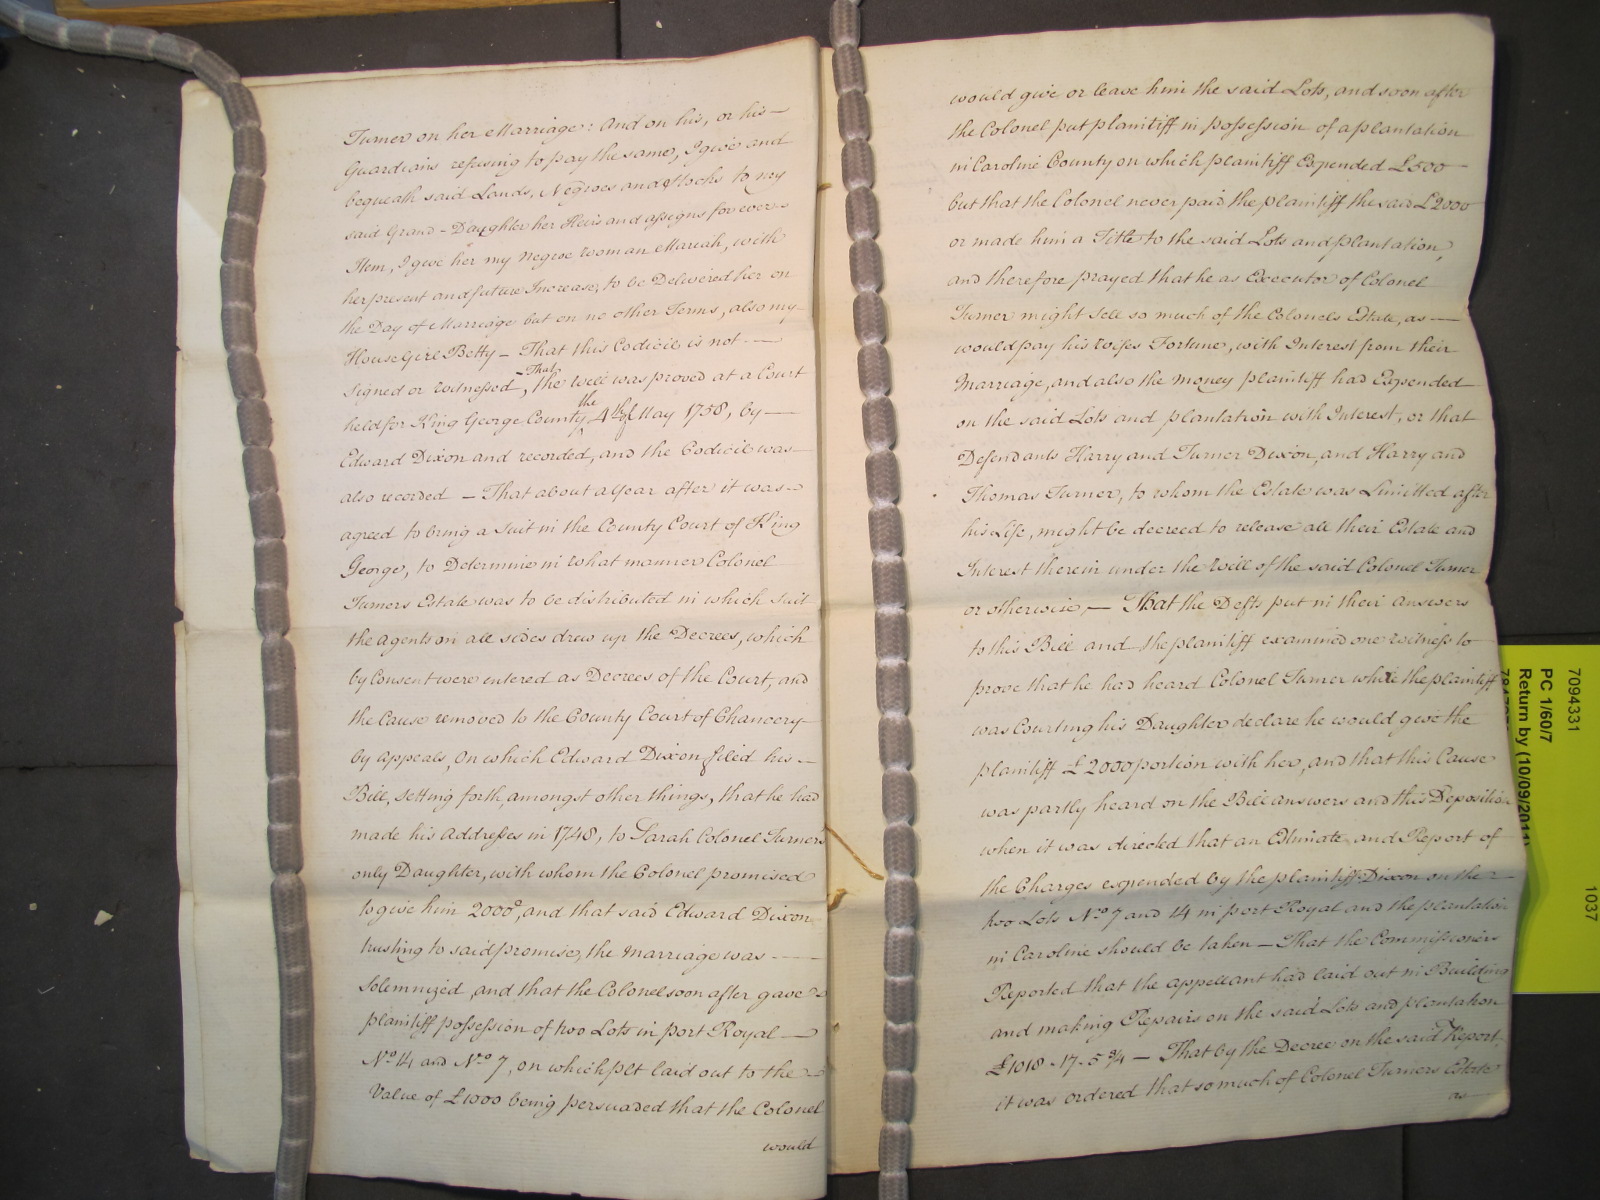 Turner on her Marriage: And on his, or his —
Guardians refusing to pay the same, I give and
bequeath said Lands, Negroes and Stocks to my
said Grand-Daughter her Heirs and assigns for ever —
Item, I give her my Negroe woman Mariah, with
her present and future Increase, to be Delivered her on
the Day of Marriage but on no other Terms, also my —
House Girl Betty — That this Codicil is not —
signed or Witnessed, That the Will was proved at a Court
held for King George County the 4th of May 1758, by —
Edward Dixon and recorded, and the Codicil was —
also recorded — That about a Year after it was —
agreed to bring a Suit in the County Court of King
George, to Determine in what manner Colonel
Turners Estate was to be distributed in which suit
the agents on all sides drew up the Decrees, which
by Consent were entered as Decrees of the Court, and
the Cause removed to the County Court of Chancery —
by appeals, On which Edward Dixon filed his —
Bill, setting forth, amongst other things, that he had
made his Addresses in 1748, to Sarah Colonel Turners
only Daughter, with whom the Colonel promised
to give him 2000£, and that said Edward Dixon
trusting to said promise, the Marriage was —
Solemnized, and that the Colonel soon after gave —
plaintiff possession of two Lots in port Royal —
No. 14 and No. 7, on which plt laid out to the —
Value of £1000 being persuaded that the Colonel
would
would give or leave him the said Lots, and soon after
the Colonel put plaintiff in possession of a plantation
in Caroline County on which plaintiff Expended £500 —
but that the Colonel never paid the plaintiff the said £2000
or made him a Title to the said Lots and plantation,
and therefore prayed that he as Executor of Colonel
Turner might sell so much of the Colonels Estate, as —
would pay his Wifes Fortune, with Interest from their
Marriage, and also the money plaintiff had Expended
on the said Lots and plantation with Interest, or that
Defendants Harry and Turner Dixon, and Harry and
Thomas Turner, to whom the Estate was Limitted after
his Life, might be decreed to release all their Estate and
Interest therein under the Will of the said Colonel Turner
or otherwise, — That the Defts put in their Answers
to this Bill and the plaintiff examined one witness to
prove that he had heard Colonel Turner while the plaintiff
was Courting his Daughter declare he would give the
plaintiff £2000 portion with her, and that this Cause
was partly heard on the Bill answers and this Deposition
when it was directed that an Estimate and Report of
the Charges expended by the plaintiff Dixon on the —
two Lots No. 7 and 14 in port Royal and the plantation
in Caroline should be taken — That the Commissioners
Reported that the appellant had laid out in Building
and making Repairs on the said Lots and plantation
£1018 - 17 - 5 3/4 — That by the Decree on the said Report
it was ordered that so much of Colonel Turners Estate
as —
7094331
PC 1/60/7
Return by (10/09/2011)
1037